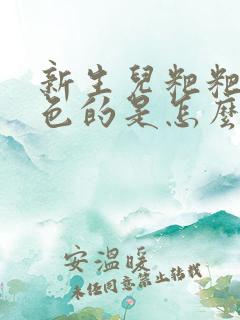 新生兒粑粑
色的是怎麼
安溫暖
未经同意禁止转载